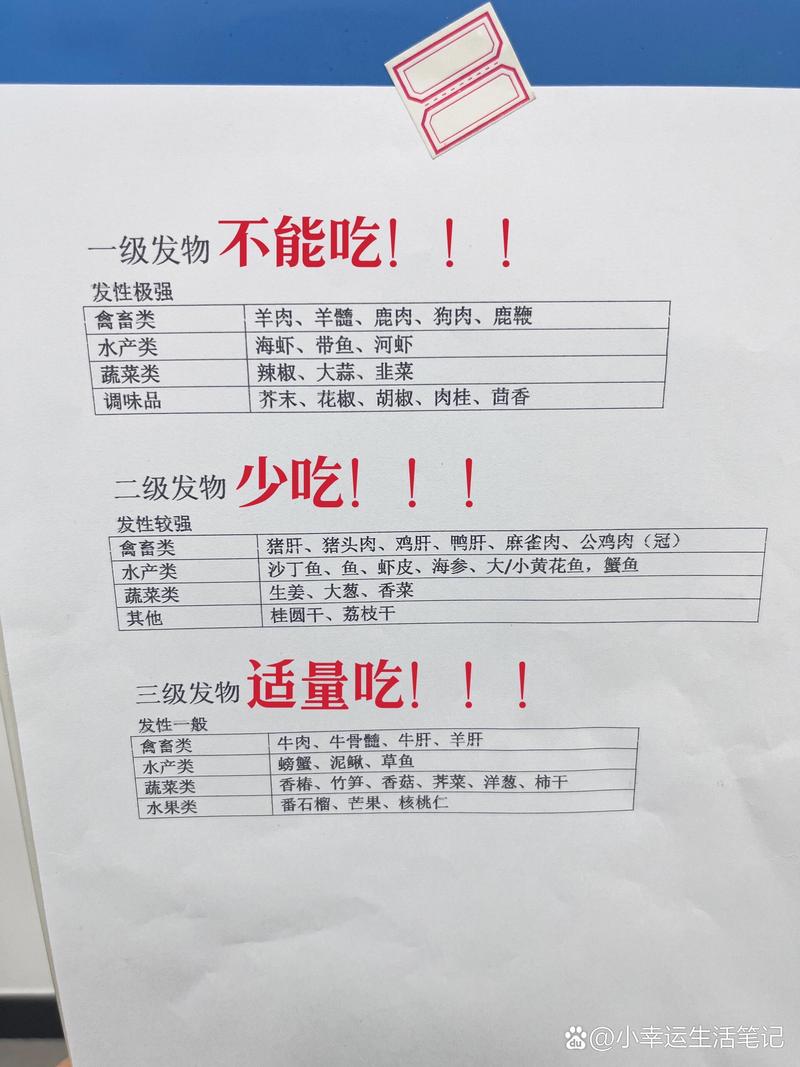 一级发物 不能吃！！！
发性极强
禽畜类 羊肉、羊髓、鹿肉、狗肉、鹿鞭
水产类 海虾、带鱼、河虾
蔬菜类 辣椒、大蒜、韭菜
调味品 芥末、花椒、胡椒、肉桂、茴香
二级发物 少吃！！！
发性较强
禽畜类 猪肝、猪头肉、鸡肝、鸭肝、麻雀肉、公鸡肉（冠）
水产类 沙丁鱼、鱼、虾皮、海参、大/小黄花鱼，蟹鱼
蔬菜类 生姜、大葱、香菜
其他 桂圆干、荔枝干
三级发物 适量吃！！！
发性一般
禽畜类 牛肉、牛骨髓、牛肝、羊肝
水产类 螃蟹、泥鳅、草鱼
蔬菜类 香椿、竹笋、香菇、荠菜、洋葱、柿干
水果类 番石榴、芒果、核桃仁
du @小幸运生活笔记